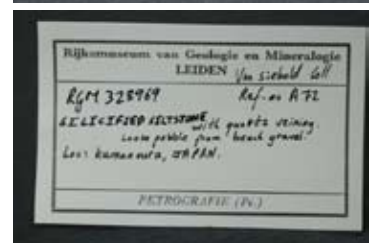 Rijksmuseum van Geologie en Mineralogie
LEIDEN Von Siebold Coll
RGM 328969 Ref. no A72
SILICIFIED SILTSTONE with quartz veining.
Loose pebble from beach gravel.
Loc: Kamanoura, JAPAN.
PETROGRAFIE (Pe.)